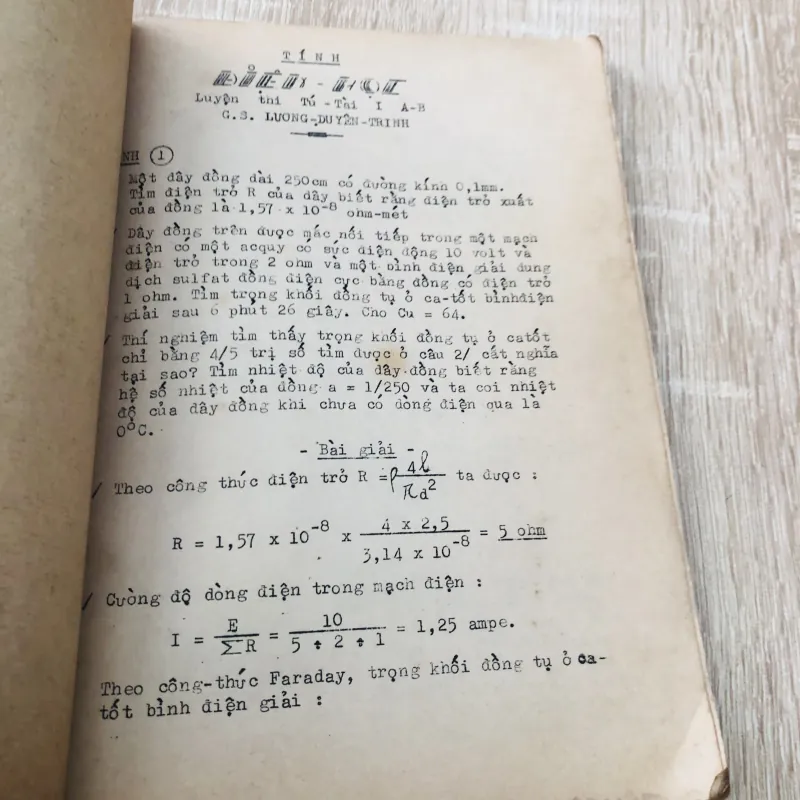 TÍNH
ĐIỆN - HỌC
Luyện thi Tú - Tài I A-B
G.S. LƯƠNG-DUYÊN-TRINH
NH 1
Một dây đồng dài 250cm có đường kính 0,1mm.
Tìm điện trở R của dây biết rằng điện trở xuất
của đồng là 1,57 x 10⁻⁸ ohm-mét
/ Dây đồng trên được mắc nối tiếp trong một mạch
điện có một acquy có sức điện động 10 volt và
điện trở trong 2 ohm và một bình điện giải dung
dịch sulfat đồng điện cực bằng đồng có điện trở
1 ohm. Tìm trọng khối đồng tụ ở ca-tốt bìnhđiện
giải sau 6 phút 26 giây. Cho Cu = 64.
/ Thí nghiệm tìm thấy trọng khối đồng tụ ở catốt
chỉ bằng 4/5 trị số tìm được ở câu 2/ cắt nghĩa
tại sao? Tìm nhiệt độ của dây đồng biết rằng
hệ số nhiệt của đồng a = 1/250 và ta coi nhiệt
độ của dây đồng khi chưa có dòng điện qua là
0°C.
- Bài giải -
/ Theo công thức điện trở R = ρ 4l / πd² ta được :
R = 1,57 x 10⁻⁸ x 4 x 2,5 / 3,14 x 10⁻⁸ = 5 ohm
/ Cường độ dòng điện trong mạch điện :
I = E / ΣR = 10 / 5 + 2 + 1 = 1,25 ampe.
Theo công-thức Faraday, trọng khối đồng tụ ở ca-
tốt bình điện giải :